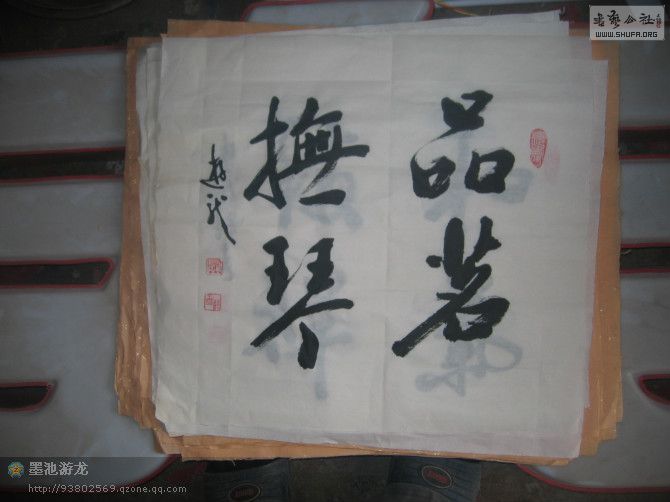 品茗
撫琴
游龙
书艺公社
WWW.SHUFA.ORG
墨池游龙
http://93802569.qzone.qq.com